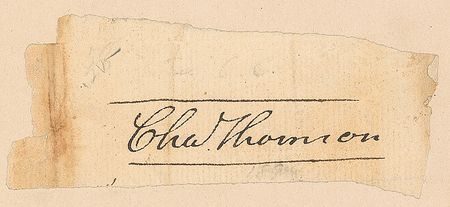 Chas. Thomson